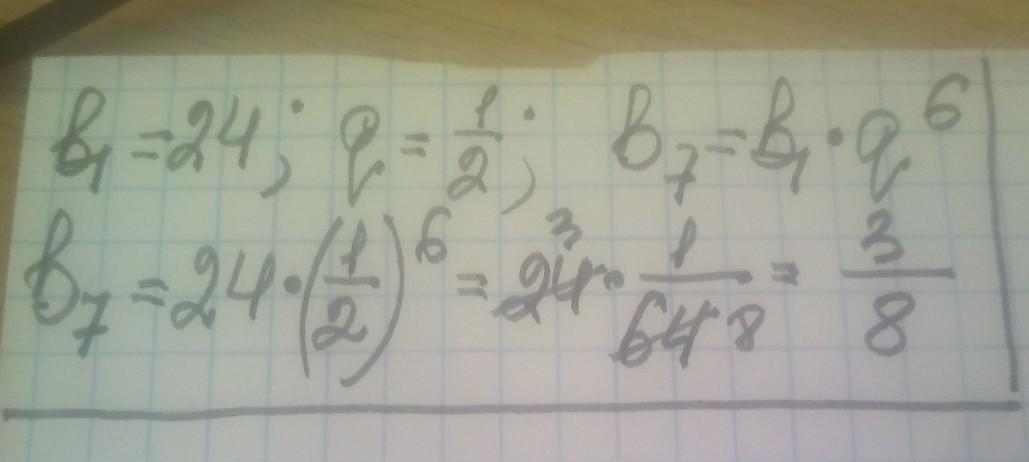 b₁ = 24; q = 1/2; b₇ = b₁ · q⁶
b₇ = 24 · (1/2)⁶ = 24 3 · 1/64 8 = 3/8